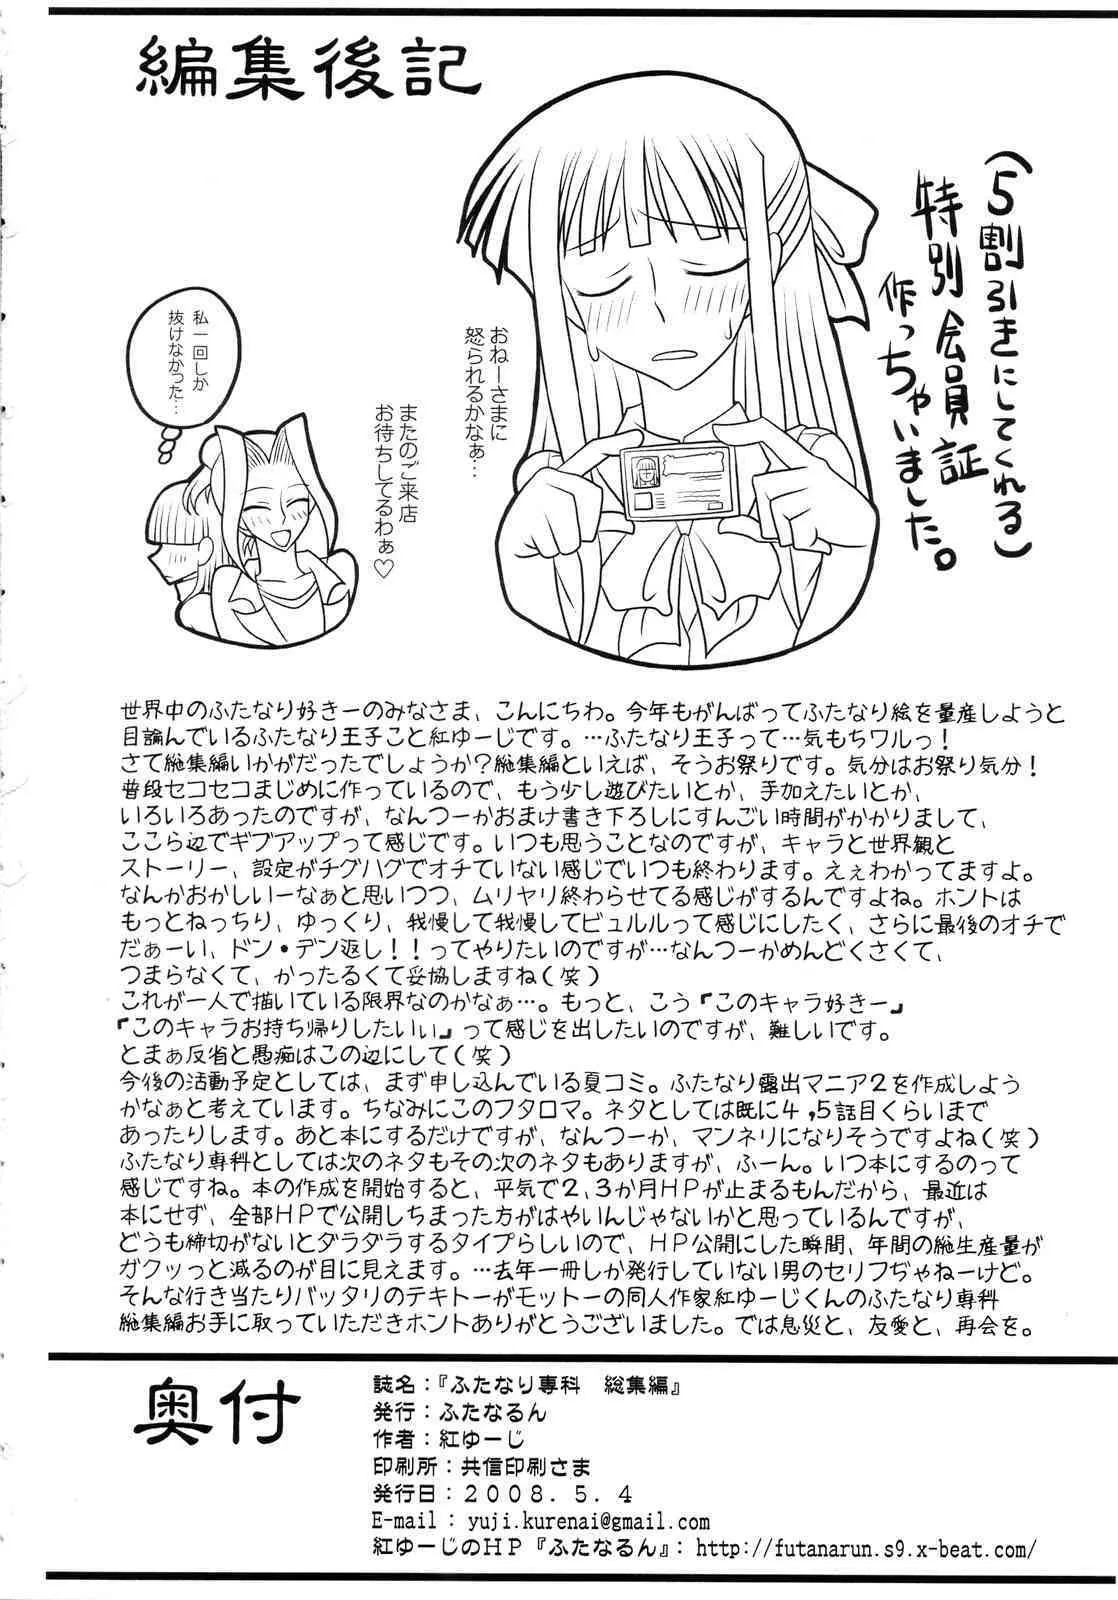 編集後記
(5割引きにしてくれる)
特別会員証
作っちゃいました。
おねーさまに
怒られるかなぁ…
またのご来店
お待ちしてるわぁ♡
私一回しか
抜けなかった…
世界中のふたなり好きーのみなさま、こんにちわ。今年もがんばってふたなり絵を量産しようと
目論んでいるふたなり王子こと紅ゆーじです。…ふたなり王子って…気もちワルっ！
さて総集編いかがだったでしょうか？総集編といえば、そうお祭りです。気分はお祭り気分！
普段セコセコまじめに作っているので、もう少し遊びたいとか、手加えたいとか、
いろいろあったのですが、なんつーかおまけ書き下ろしにすんごい時間がかかりまして、
ここら辺でギブアップって感じです。いつも思うことなのですが、キャラと世界観と
ストーリー、設定がチグハグでオチていない感じでいつも終わります。えぇわかってますよ。
なんかおかしいーなぁと思いつつ、ムリヤリ終わらせてる感じがするんですよね。ホントは
もっとねっちり、ゆっくり、我慢して我慢してビュルルって感じにしたく、さらに最後のオチで
だぁーい、ドン・デン返し！！ってやりたいのですが…なんつーかめんどくさくて、
つまらなくて、かったるくて妥協しますね(笑)
これが一人で描いている限界なのかなぁ…。もっと、こう『このキャラ好きー』
『このキャラお持ち帰りしたいぃ』って感じを出したいのですが、難しいです。
とまぁ反省と愚痴はこの辺にして(笑)
今後の活動予定としては、まず申し込んでいる夏コミ。ふたなり露出マニア2を作成しよう
かなぁと考えています。ちなみにこのフタロマ。ネタとしては既に4,5話目くらいまで
あったりします。あと本にするだけですが、なんつーか、マンネリになりそうですよね(笑)
ふたなり専科としては次のネタもその次のネタもありますが、ふーん。いつ本にするのって
感じですね。本の作成を開始すると、平気で2,3か月HPが止まるもんだから、最近は
本にせず、全部HPで公開しちまった方がはやいんじゃないかと思っているんですが、
どうも締切がないとダラダラするタイプらしいので、HP公開にした瞬間、年間の総生産量が
ガクッっと減るのが目に見えます。…去年一冊しか発行していない男のセリフぢゃねーけど。
そんな行き当たりバッタリのテキトーがモットーの同人作家紅ゆーじくんのふたなり専科
総集編お手に取っていただきホントありがとうございました。では息災と、友愛と、再会を。
奥付
誌名：『ふたなり専科　総集編』
発行：ふたなるん
作者：紅ゆーじ
印刷所：共信印刷さま
発行日：2008．5．4
E-mail：yuji.kurenai@gmail.com
紅ゆーじのHP『ふたなるん』：http://futanarun.s9.x-beat.com/